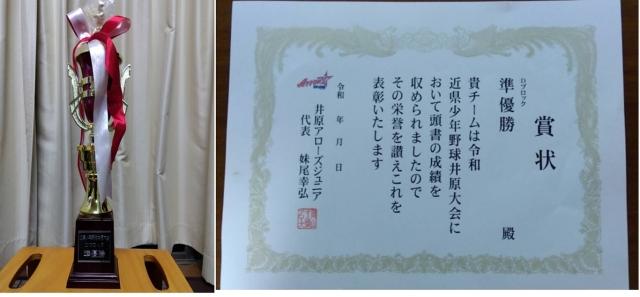 準優勝
賞状
Dブロック
準優勝
殿
貴チームは令和
近県少年野球井原大会に
おいて頭書の成績を
収められましたので
その栄誉を讃えこれを
表彰いたします
令和 年 月 日
井原アローズジュニア
代表 妹尾幸弘